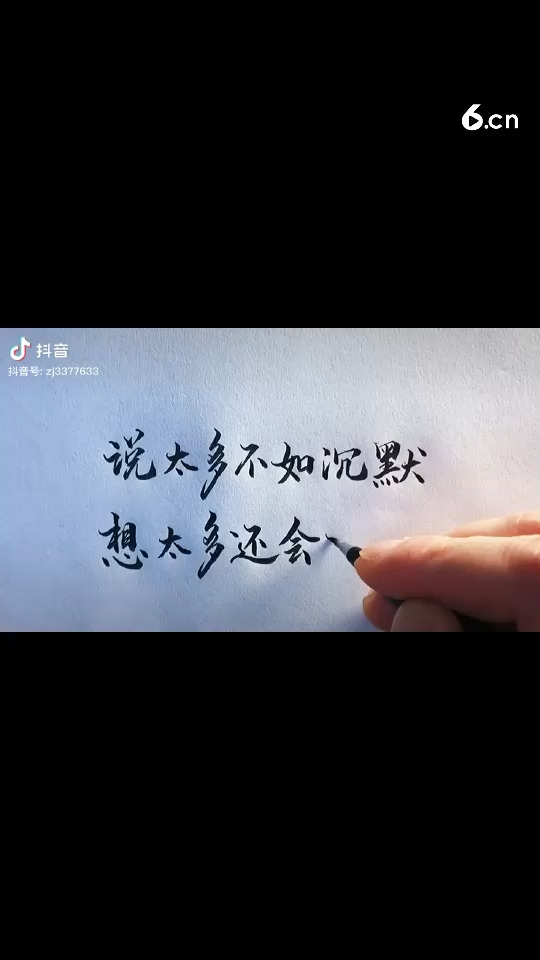 6.cn
抖音
抖音号: zj3377633
说太多不如沉默
想太多还会